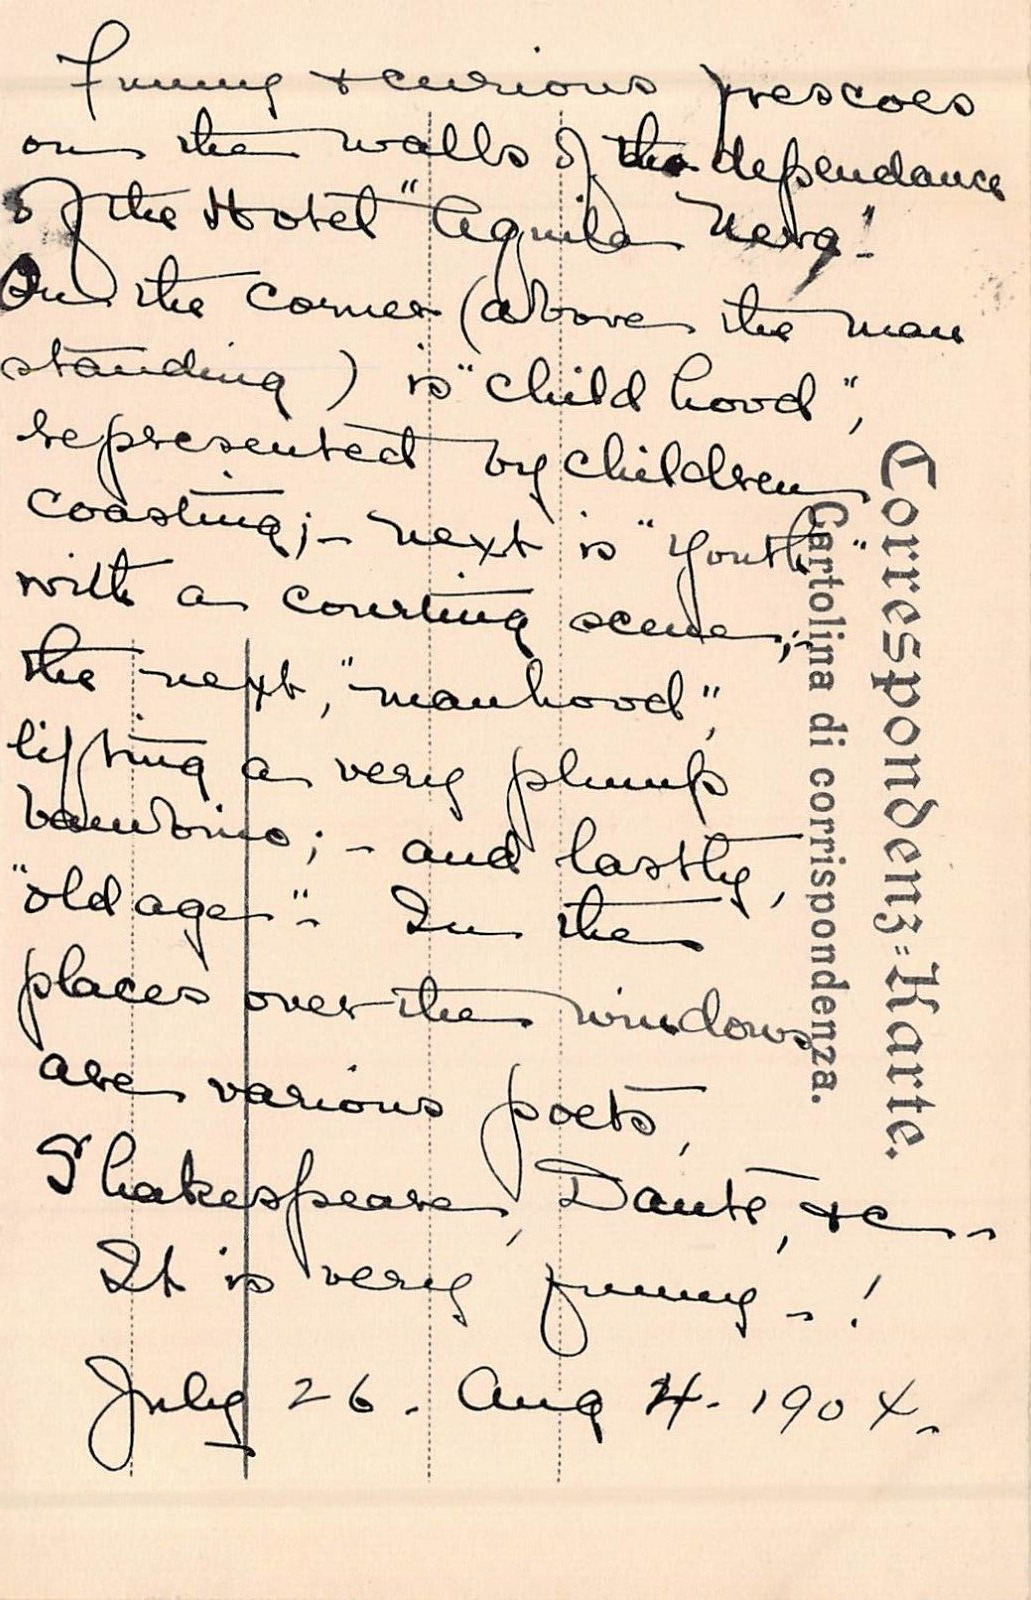 Funny & curious frescoes
on the walls of the dependance
of the Hotel "Aquila Nera"!
On the corner (above the man
standing) is "childhood",
represented by children
coasting; - next is "youth"
with a courting scene; -
the next, "manhood",
lifting a very plump
bambino; - and lastly,
"old age" - In the
places over the windows
are various poets,
Shakespeare, Dante, &c -
It is very funny - !
July 26 - Aug 4 - 1904 -
Correspondenz=Karte.
Cartolina di corrispondenza.